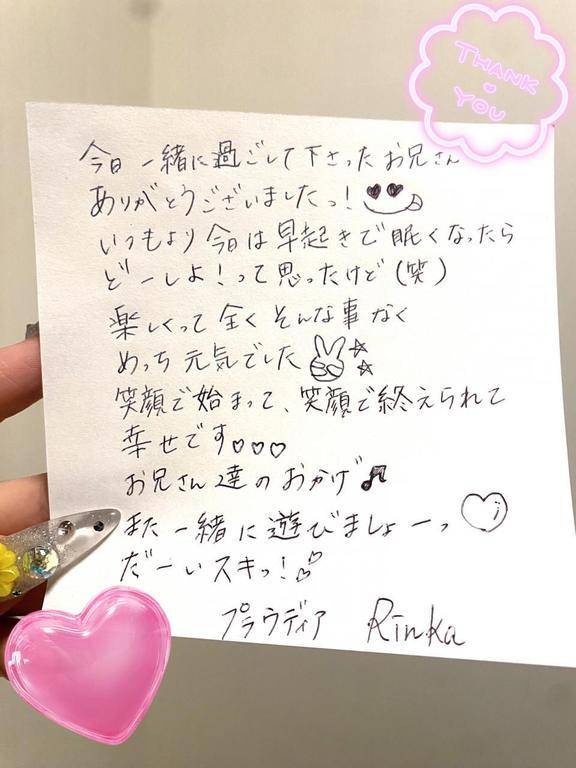 THANK
YOU
今日一緒に過ごして下さったお兄さん
ありがとうございましたっ!
いつもより今日は早起きで眠くなったら
どーしよ!って思ったけど(笑)
楽しくって全くそんな事なく
めっち元気でした
笑顔で始まって、笑顔で終えられて
幸せです♡♡♡
お兄さん達のおかげ♫
また一緒に遊びましょーっ♡
だーいスキっ!
プラウディア Rinka